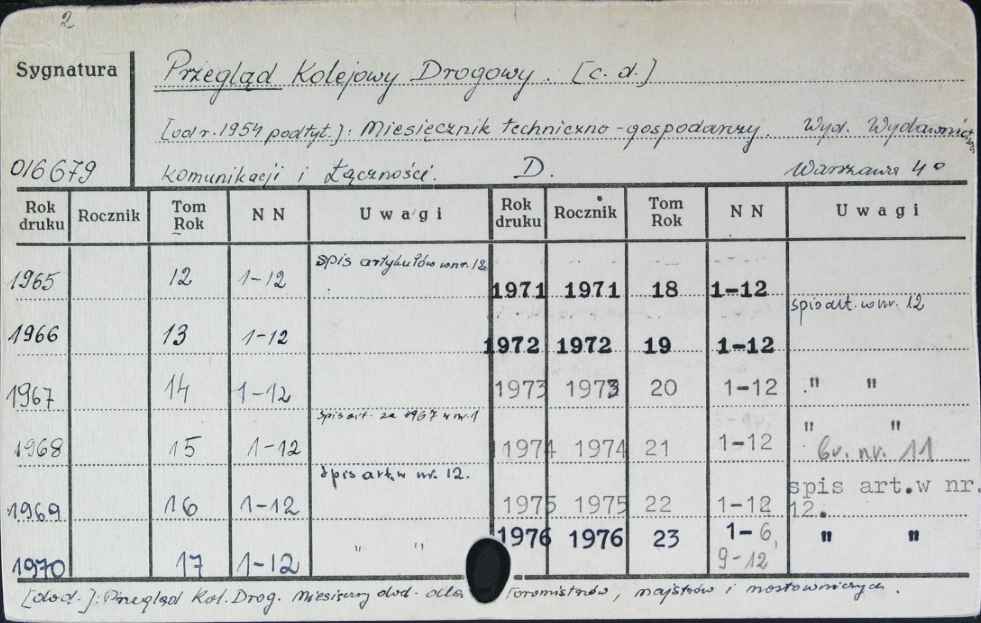 2
Sygnatura
Przegląd Kolejowy Drogowy. [c. d.]
[od r. 1954 podtyt.]: Miesięcznik techniczno-gospodarczy. Wyd. Wydawnictw
016679
Komunikacji i Łączności. D. Warszawa 4°
Rok druku Rocznik Tom Rok NN Uwagi Rok druku Rocznik Tom Rok NN Uwagi
1965 12 1-12 spis artykułów w nr. 12 1971 1971 18 1-12
1966 13 1-12 1972 1972 19 1-12 spis art. w nr. 12
1967 14 1-12 1973 1973 20 1-12 " "
1968 15 1-12 spis art. za 1967 w nr. 1 1974 1974 21 1-12 " " nr. 11
1969 16 1-12 spis art. w nr. 12. 1975 1975 22 1-12 spis art.w nr. 12.
1970 17 1-12 " " 1976 1976 23 1-6, 9-12 " "
[dod.]: Przegląd Kol. Drog. Miesięczny dod. dla Toromistrzów, majstrów i mostowniczych.